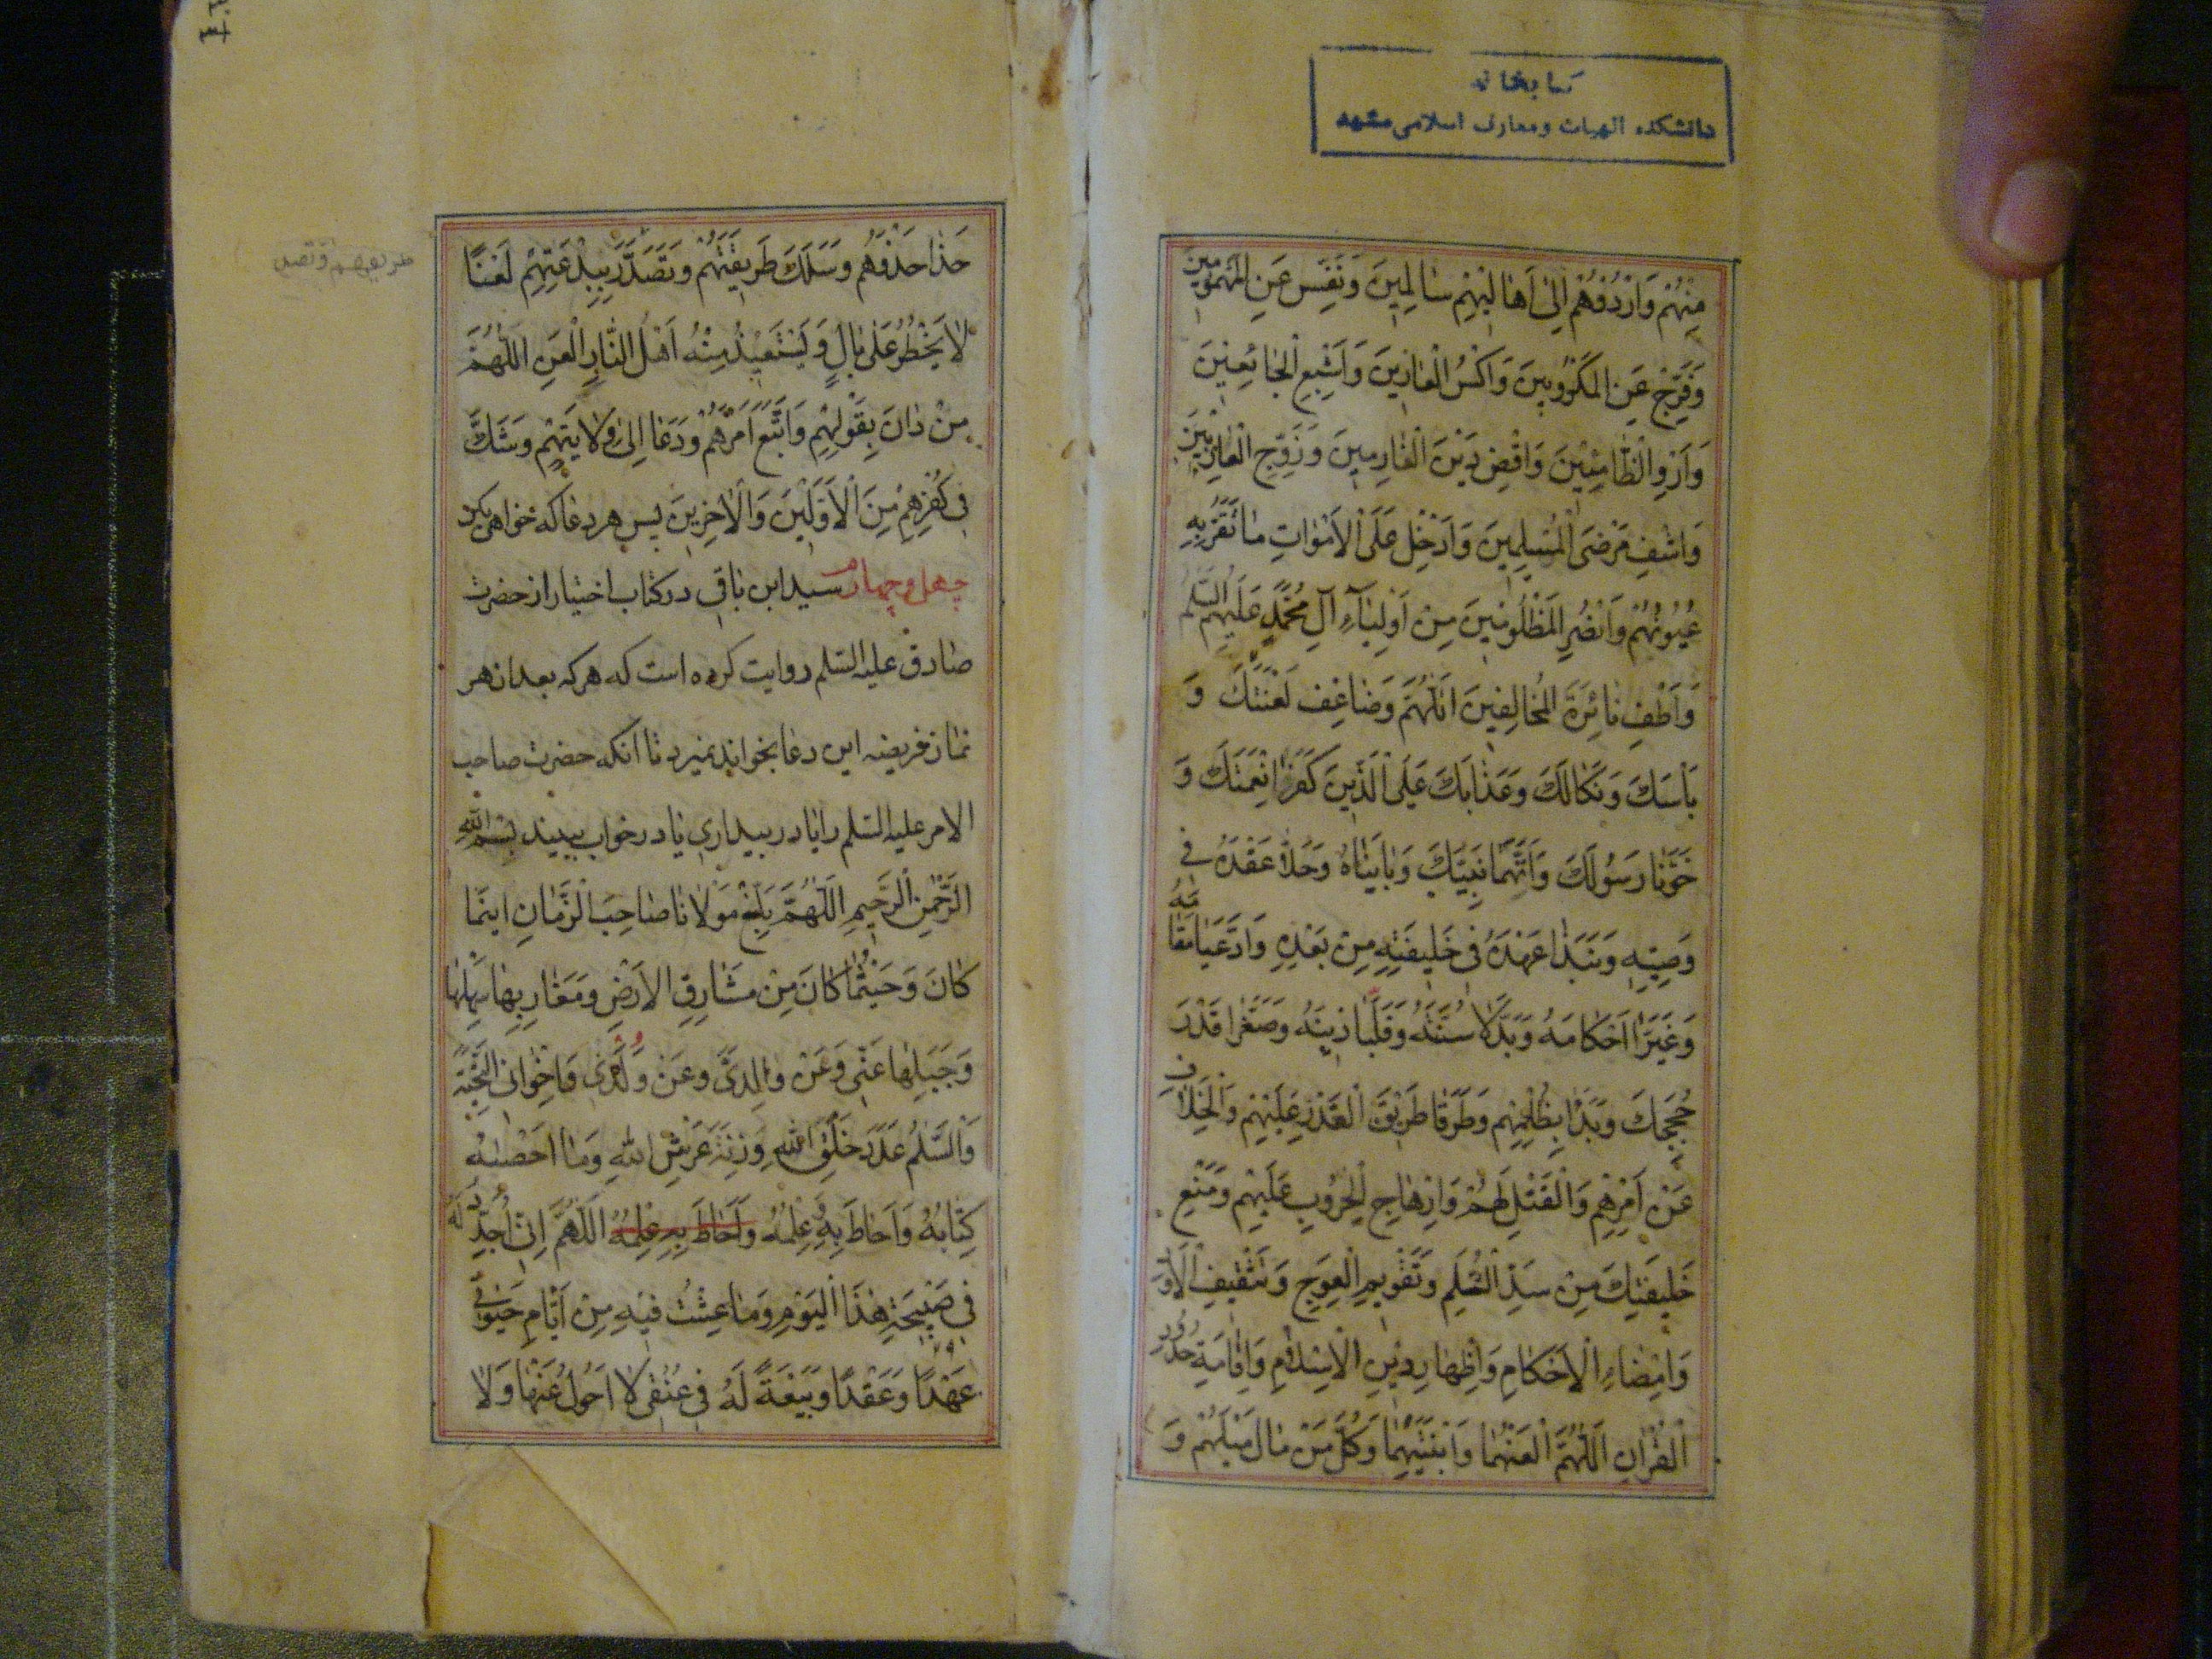 كتابخانه
دانشكده الهيات ومعارف اسلامى مشهد
مِنْهُمْ وَارْدُدْهُمْ اِلىٰ اَهٰاليهِمْ سٰالِمينَ وَنَفِّس عَنِ المَهْمُومينَ
وَفَرِّجْ عَنِ المَكْرُوبينَ وَاكْسُ الْعٰارينَ وَاَشْبِعِ الْجٰائِعينَ
وَاَرْوِ الْظّٰامِئينَ وَاقْضِ دَيْنَ الْغٰارِمينَ وَزَوِّجِ الْعٰازِبينَ
وَاشْفِ مَرْضَى الْمُسْلِمينَ وَاَدْخِلْ عَلَى الْاَمْوٰاتِ مٰا تَقَرُّ بِهِ
عُيُونُهُمْ وَانْصُرِ المَظْلُومينَ مِنْ اَوْلِيٰآءِ آلِ مُحَمَّدٍ عَلَيْهِمُ السَّلٰمُ
وَاَطْفِ نٰائِرَةَ المُخٰالِفينَ اَللّٰهُمَّ وَضٰاعِف لَعْنَتَكَ وَ
بَأْسَكَ وَنَكٰالَكَ وَعَذٰابَكَ عَلَى الَّذينَ كَفَرٰا نِعْمَتَكَ وَ
خَوَّنٰا رَسُولَكَ وَاتَّهَمٰا نَبِيَّكَ وَبٰايَنٰاهُ وَحَلّٰا عَقْدَهُ فى
وَصِيِّهِ وَنَبَذٰا عَهْدَهُ فى خَليفَتِهِ مِنْ بَعْدِهِ وَادَّعَيٰا مَقٰامَهُ
وَغَيَّرٰا اَحْكٰامَهُ وَبَدَّلٰا سُنَّتَهُ وَقَلَّبٰا دينَهُ وَصَغَّرٰا قَدْرَ
حُجَجِكَ وَبَدَاٰ بِظُلْمِهِم وَطَرَّقٰا طَريقَ الْغَدْرِ عَلَيْهِمْ وَالْخِلٰافِ
عَنْ اَمْرِهِم وَالْقَتْلِ لَهُمْ وَاِرْهٰاجِ الْحُرُوبِ عَلَيْهِم وَمَنْعِ
خَليفَتِكَ مِنْ سَدِّ الثُّلَمِ وَتَقْويمِ الْعِوَجِ وَتَثْقيفِ الْاَوَدِ
وَامْضٰاءِ الْاَحْكٰامِ وَاِظْهٰارِ دينِ الْاِسْلٰامِ وَاِقٰامَةِ حُدُودِ
الْقُرْاٰنِ اَللّٰهُمَّ الْعَنْهُمٰا وَابْنَتَيْهِمٰا وَكُلَّ مَنْ مٰالَ مَيْلَهُمْ وَ
حَذٰا حَذْوَهُم وَسَلَكَ طَريقَتَهُمْ وَتَصَدَّرَ بِبِدْعَتِهِمْ لَعْنًا
لٰا يَخْطُرُ عَلىٰ بٰالٍ وَيَسْتَعيذُ مِنْهُ اَهْلُ النّٰارِ الْعَنِ اللّٰهُمَّ
مِنْ دٰانَ بِقَوْلِهِم وَاتَّبَعَ اَمْرَهُمْ وَدَعٰا اِلىٰ وِلٰايَتِهِم وَشَكَّ
فى كُفْرِهِمْ مِنَ الْاَوَّلينَ وَالْاٰخِرينَ پس هر دعا كه خواهى بكن
چهل وچهارم سيد ابن باقى در كتاب اختيار از حضرت
صادق عليه السّلم روايت كرده است كه هركه بعد از هر
نماز فريضه اين دعا بخواند نميرد تا انكه حضرت صاحب
الامر عليه السّلم را يا در بيدارى يا در خواب ببيند بِسْمِ اللّٰهِ
الرَّحْمٰنِ الرَّحيمِ اَللّٰهُمَّ بَلِّغْ مَوْلٰانٰا صٰاحِبَ الْزَّمٰانِ اينَمٰا
كٰانَ وَحَيْثُمٰا كٰانَ مِنْ مَشٰارِقِ الاَرْضِ وَمَغٰارِبِهٰا سَهْلِهٰا
وَجَبَلِهٰا عَنّى وَعَنْ وٰالِدَىَّ وَعَنْ وُلْدى وَاِخْوٰانى التَّحِيَّةَ
وَالسَّلٰمُ عَدَدَ خَلْقِ اللّٰهِ وَزِنَةَ عَرْشِ اللّٰهِ وَمٰا اَحْصٰىهُ
كِتٰابُهُ وَاَحٰاطَ بِهِ عِلْمُهُ وَاَحٰاطَ بِهِ عِلْمُهُ اَللّٰهُمَّ اِنّى اُجَدِّدُ لَهُ
فى صَبيحَةِ هٰذَا الْيَوْمِ وَمٰا عِشْتُ فيهِ مِنْ اَيّٰامِ حَيٰوتى
عَهْدًا وَعَقْدًا وَبَيْعَةً لَهُ فى عُنُقى لٰا اَحُولُ عَنْهٰا وَلٰا